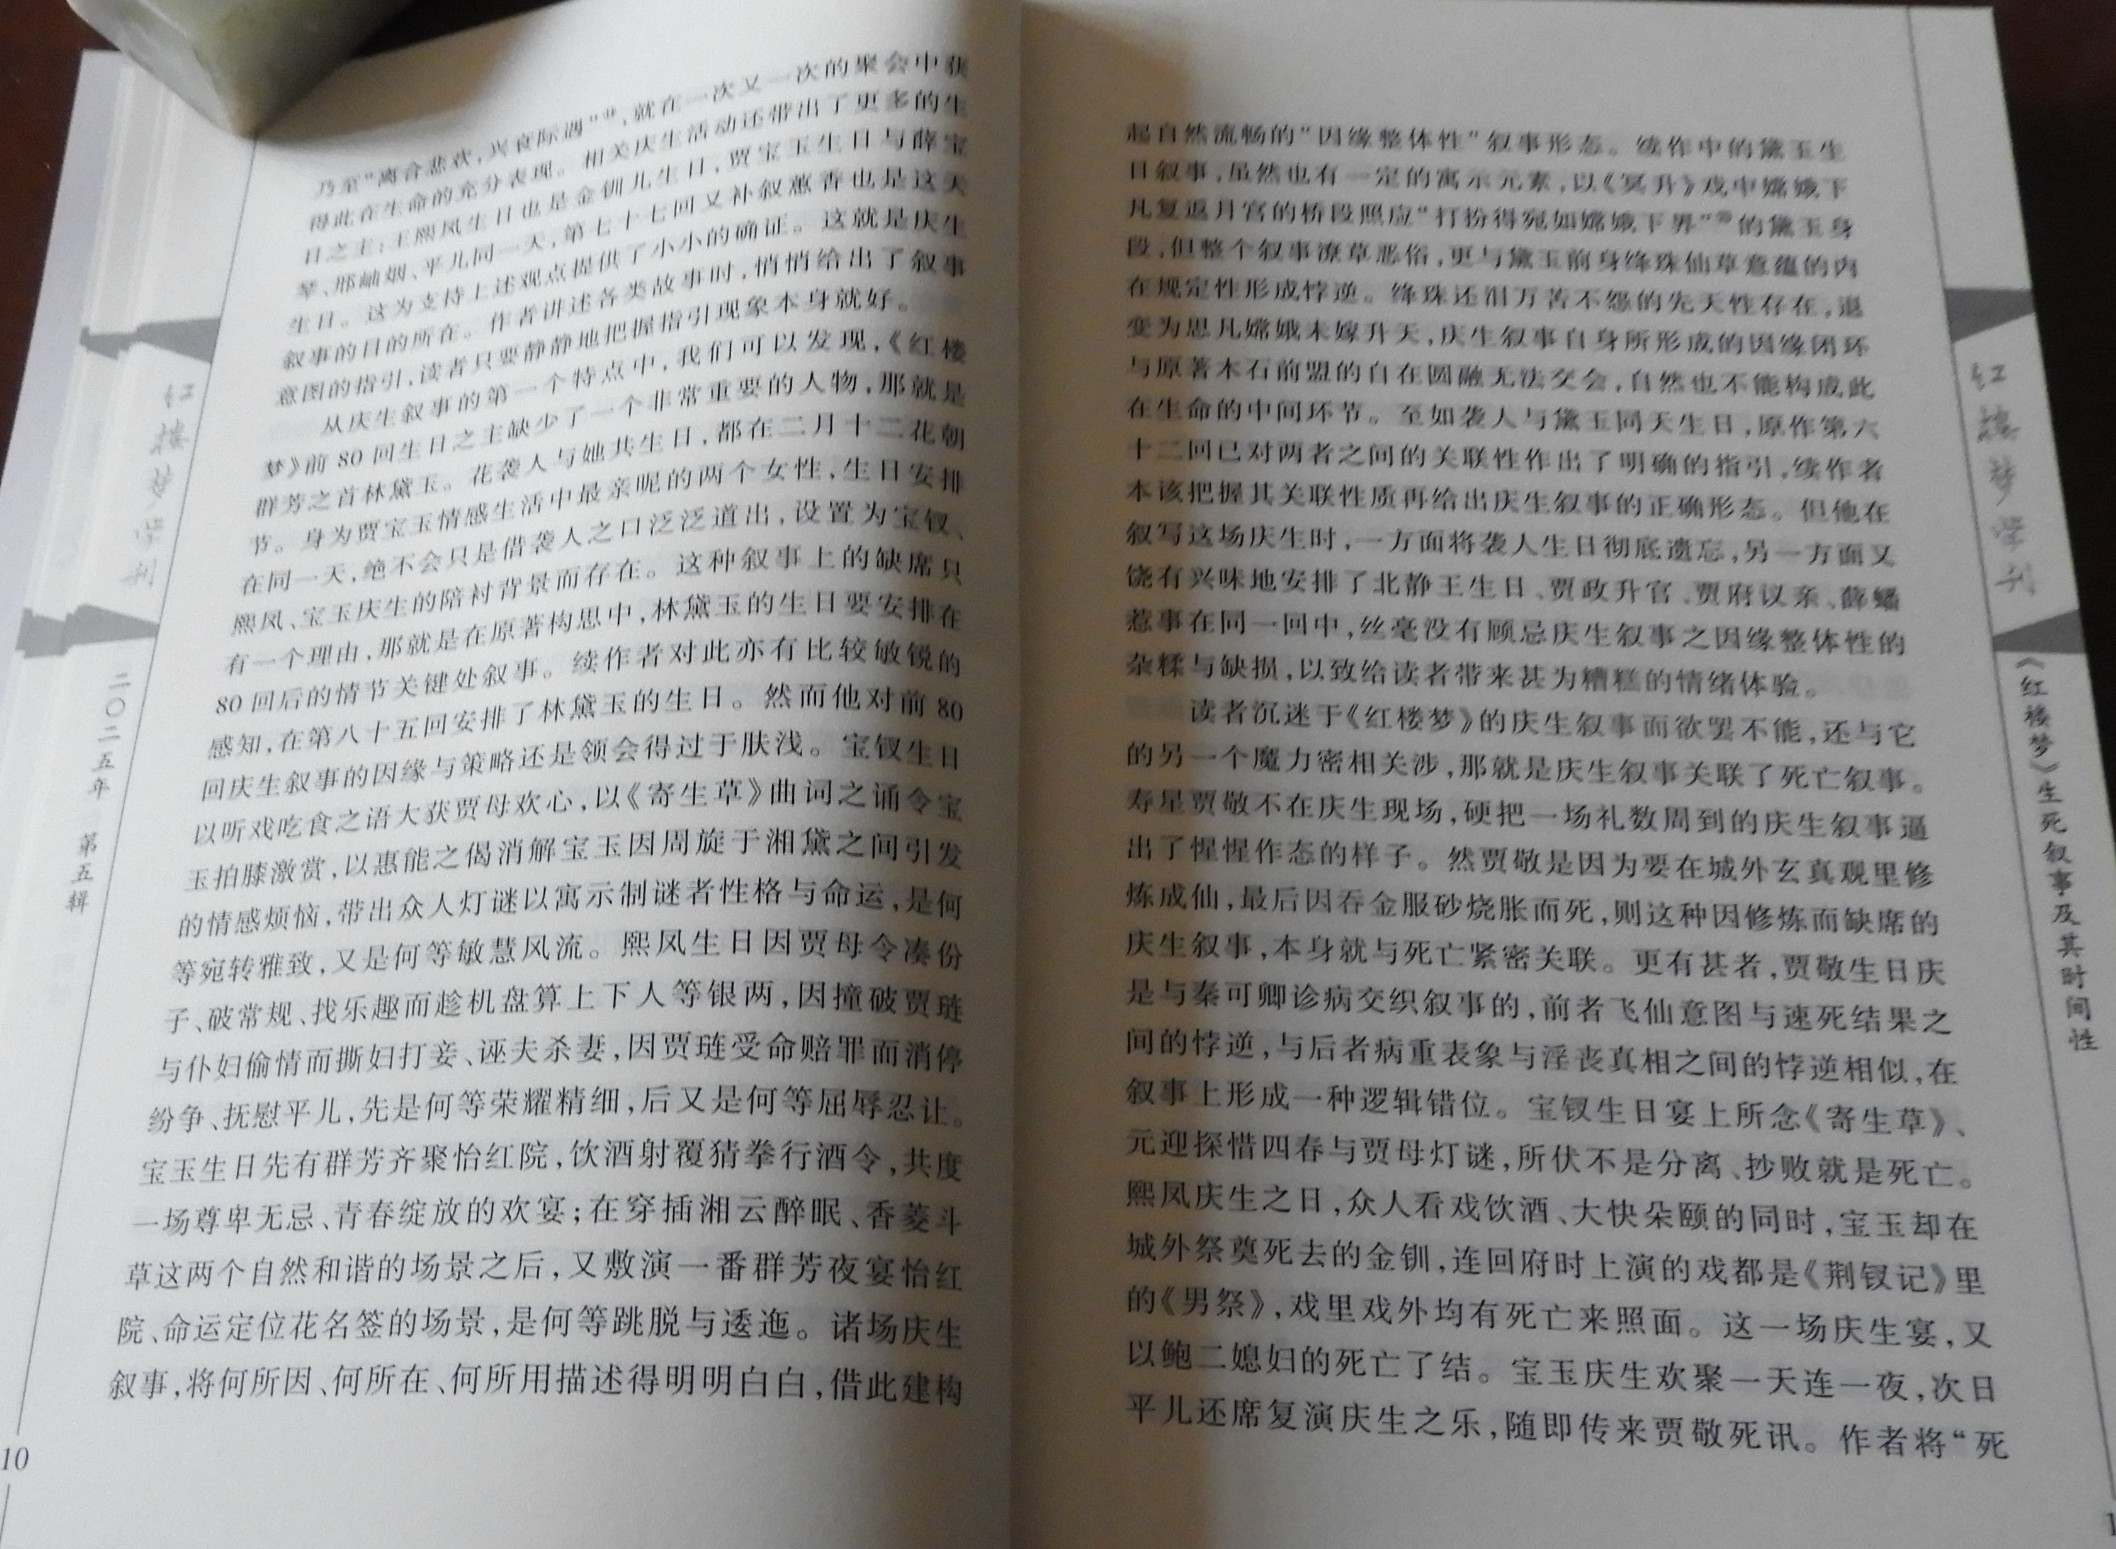 乃至“离合悲欢,兴衰际遇”,就在一次又一次的聚会中获
得此在生命的充分表现。相关庆生活动还带出了更多的生
日之主:王熙凤生日也是金钏儿生日,贾宝玉生日与薛宝
琴、邢岫烟、平儿同一天,第七十七回又补叙蕙香也是这天
生日。这为支持上述观点提供了小小的确证。这就是庆生
叙事的目的所在。作者讲述各类故事时,悄悄给出了叙事
意图的指引,读者只要静静地把握指引现象本身就好。
从庆生叙事的第一个特点中,我们可以发现,《红楼
梦》前80回生日之主缺少了一个非常重要的人物,那就是
群芳之首林黛玉。花袭人与她共生日,都在二月十二花朝
节。身为贾宝玉情感生活中最亲昵的两个女性,生日安排
在同一天,绝不会只是借袭人之口泛泛道出,设置为宝钗、
熙凤、宝玉庆生的陪衬背景而存在。这种叙事上的缺席只
有一个理由,那就是在原著构思中,林黛玉的生日要安排在
80回后的情节关键处叙事。续作者对此亦有比较敏锐的
感知,在第八十五回安排了林黛玉的生日。然而他对前80
回庆生叙事的因缘与策略还是领会得过于肤浅。宝钗生日
以听戏吃食之语大获贾母欢心,以《寄生草》曲词之诵令宝
玉拍膝激赏,以惠能之偈消解宝玉因周旋于湘黛之间引发
的情感烦恼,带出众人灯谜以寓示制谜者性格与命运,是何
等宛转雅致,又是何等敏慧风流。熙凤生日因贾母令凑份
子、破常规、找乐趣而趁机盘算上下人等银两,因撞破贾琏
与仆妇偷情而撕妇打妾、诬夫杀妻,因贾琏受命赔罪而消停
纷争、抚慰平儿,先是何等荣耀精细,后又是何等屈辱忍让。
宝玉生日先有群芳齐聚怡红院,饮酒射覆猜拳行酒令,共度
一场尊卑无忌、青春绽放的欢宴;在穿插湘云醉眠、香菱斗
草这两个自然和谐的场景之后,又敷演一番群芳夜宴怡红
院、命运定位花名签的场景,是何等跳脱与逶迤。诸场庆生
叙事,将何所因、何所在、何所用描述得明明白白,借此建构
红楼梦学刊
二〇二五年 第五辑
10
起自然流畅的“因缘整体性”叙事形态。续作中的黛玉生
日叙事,虽然也有一定的寓示元素,以《冥升》戏中嫦娥下
凡复返月宫的桥段照应“打扮得宛如嫦娥下界”的黛玉身
段,但整个叙事潦草恶俗,更与黛玉前身绛珠仙草意蕴的内
在规定性形成悖逆。绛珠还泪万苦不怨的先天性存在,退
变为思凡嫦娥未嫁升天,庆生叙事自身所形成的因缘闭环
与原著木石前盟的自在圆融无法交会,自然也不能构成此
在生命的中间环节。至如袭人与黛玉同天生日,原作第六
十二回已对两者之间的关联性作出了明确的指引,续作者
本该把握其关联性质再给出庆生叙事的正确形态。但他在
叙写这场庆生时,一方面将袭人生日彻底遗忘,另一方面又
饶有兴味地安排了北静王生日、贾政升官、贾府议亲、薛蟠
惹事在同一回中,丝毫没有顾忌庆生叙事之因缘整体性的
杂糅与缺损,以致给读者带来甚为糟糕的情绪体验。
读者沉迷于《红楼梦》的庆生叙事而欲罢不能,还与它
的另一个魔力密相关涉,那就是庆生叙事关联了死亡叙事。
寿星贾敬不在庆生现场,硬把一场礼数周到的庆生叙事逼
出了惺惺作态的样子。然贾敬是因为要在城外玄真观里修
炼成仙,最后因吞金服砂烧胀而死,则这种因修炼而缺席的
庆生叙事,本身就与死亡紧密关联。更有甚者,贾敬生日庆
是与秦可卿诊病交织叙事的,前者飞仙意图与速死结果之
间的悖逆,与后者病重表象与淫丧真相之间的悖逆相似,在
叙事上形成一种逻辑错位。宝钗生日宴上所念《寄生草》、
元迎探惜四春与贾母灯谜,所伏不是分离、抄败就是死亡。
熙凤庆生之日,众人看戏饮酒、大快朵颐的同时,宝玉却在
城外祭奠死去的金钏,连回府时上演的戏都是《荆钗记》里
的《男祭》,戏里戏外均有死亡来照面。这一场庆生宴,又
以鲍二媳妇的死亡了结。宝玉庆生欢聚一天连一夜,次日
平儿还席复演庆生之乐,随即传来贾敬死讯。作者将“死
红楼梦学刊
《红楼梦》生死叙事及其时间性